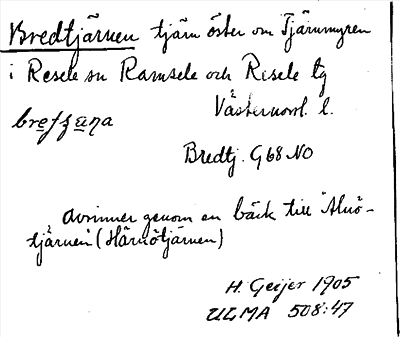 Bredtjärnen tjärn öster om Tjärnmyren
i Resele sn Ramsele och Resele tg
Västernorrl. l.
Bredtj. G68 NO
avrinner genom en bäck till "Alnö-
tjärnen" (Härnötjärnen)
H. Geijer 1905
ULMA 508:47